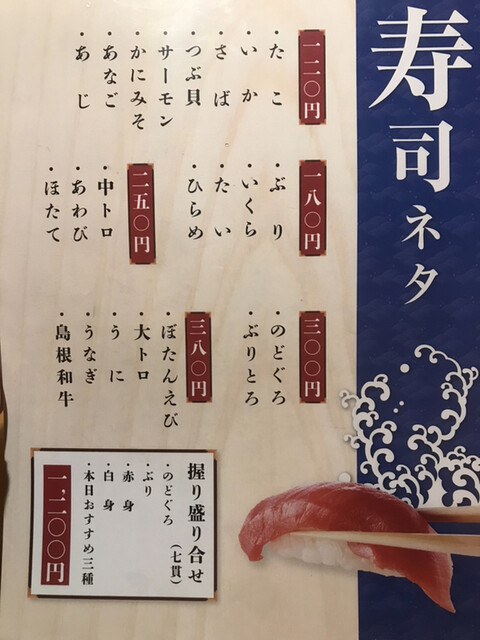 寿司ネタ
一二〇円
・たこ
・いか
・さば
・つぶ貝
・サーモン
・かにみそ
・あなご
・あじ
一八〇円
・ぶり
・いくら
・たい
・ひらめ
二五〇円
・中トロ
・あわび
・ほたて
三〇〇円
・のどぐろ
・ぶりとろ
三八〇円
・ぼたんえび
・大トロ
・うに
・うなぎ
・島根和牛
握り盛り合せ
(七貫)
・のどぐろ
・ぶり
・赤身
・白身
・本日おすすめ三種
一、二〇〇円